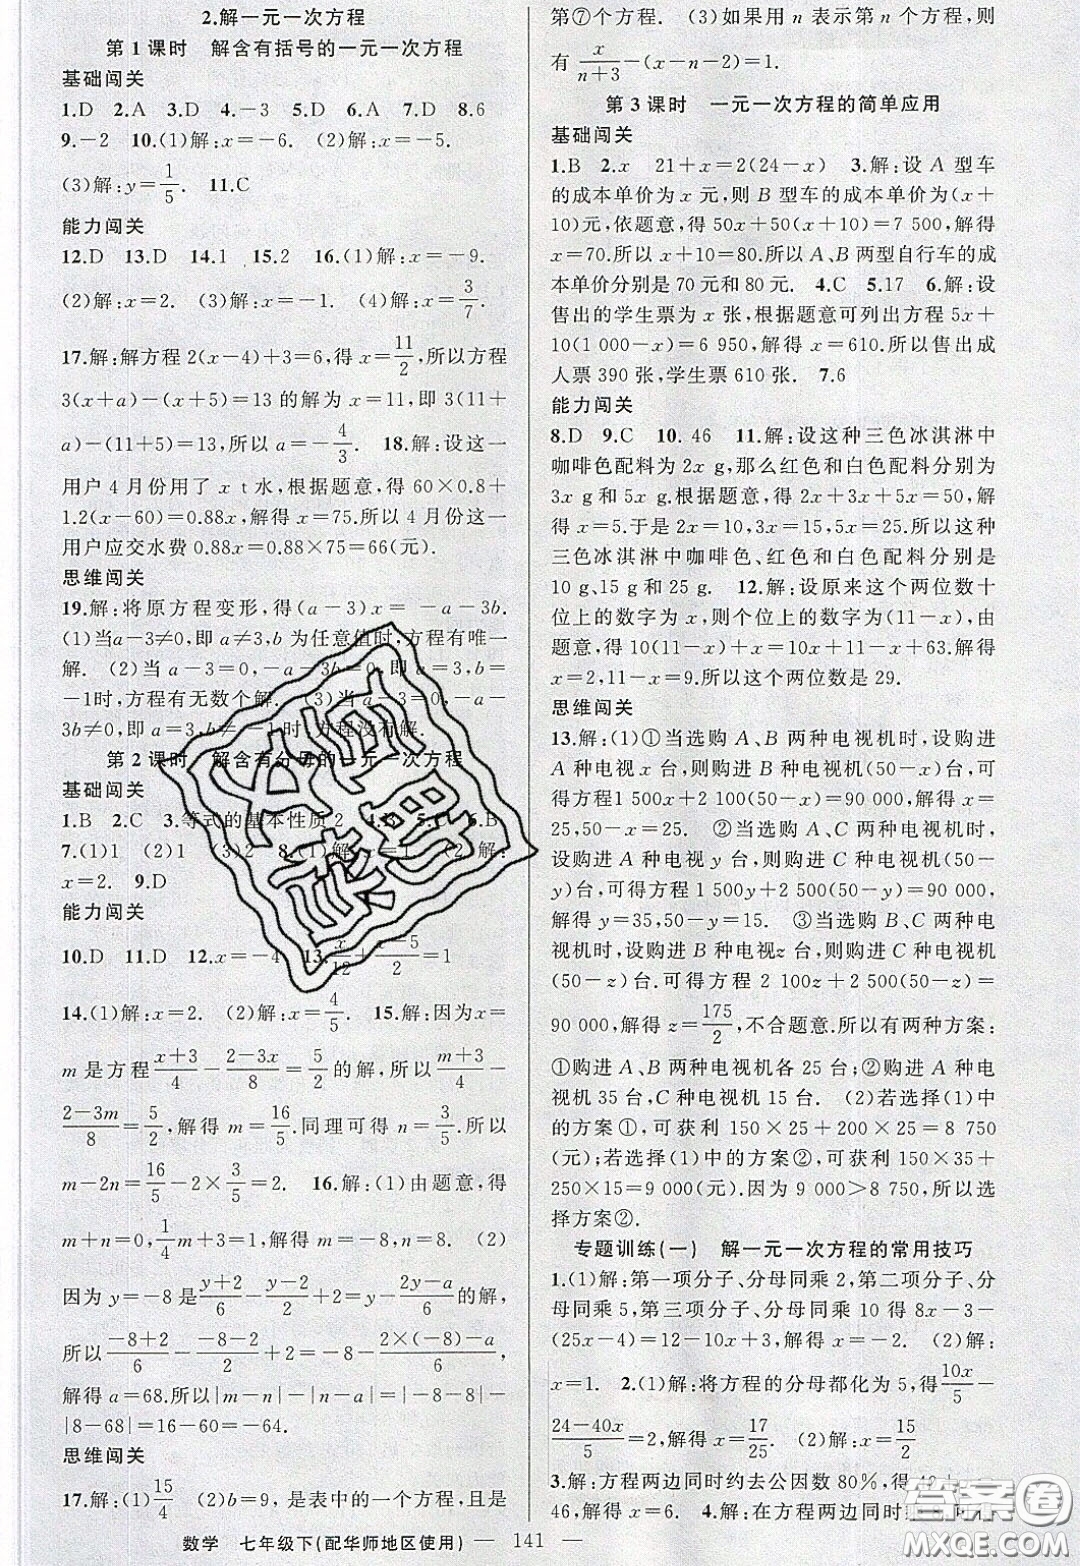 2.解一元一次方程
第1课时 解含有括号的一元一次方程
基础闯关
1.D 2.A 3.D 4.-3 5.D 6.A 7.D 8.6
9.-2 10.(1)解:x=-6. (2)解:x=-5.
(3)解:y=1/5. 11.C
能力闯关
12.D 13.D 14.1 15.2 16.(1)解:x=-9.
(2)解:x=2. (3)解:x=-1. (4)解:x=3/7.
17.解:解方程2(x-4)+3=6,得x=11/2,所以方程
3(x+a)-(x+5)=13的解为x=11,即3(11+
a)-(11+5)=13,所以a=-4/3. 18.解:设这一
用户4月份用了x t水,根据题意,得60×0.8+
1.2(x-60)=0.88x,解得x=75.所以4月份这一
用户应交水费0.88x=0.88×75=66(元).
思维闯关
19.解:将原方程变形,得(a-3)x=-a-3b.
(1)当a-3≠0,即a≠3,b为任意值时,方程有唯一
解. (2)当a-3=0,-a-3b=0,即a=3,b=
-1时,方程有无数个解. (3)当a-3=0,-a-
3b≠0,即a=3,b≠-1时,方程没有解.
第2课时 解含有分母的一元一次方程
基础闯关
1.B 2.C 3.等式的基本性质2 6.B
7.(1)1 (2)1 (3)2 8.(1)解: (2)解:
x=2. 9.D
能力闯关
10.D 11.D 12.x=-4 13.x/12+(x-5)/2=1
14.(1)解:x=2. (2)解:x=4/5. 15.解:因为x=
m是方程(x+3)/4-(2-3x)/8=5/2的解,所以(m+3)/4-
(2-3m)/8=5/2,解得m=16/5.同理可得n=3/5.所以
m-2n=16/5-2×3/5=2. 16.解:(1)由题意,得
m+n=0,1/4m+3=1,解得m=-8. (2)
因为y=-8是(y+2)/6-(y-2)/2+2=y-(2y-a)/6的解,
所以(-8+2)/6-(-8-2)/2+2=-8-(2×(-8)-a)/6,
解得a=68.所以|m-n|-|n-a|=|-8-8|-
|8-68|=16-60=-64.
思维闯关
17.解:(1)15/4 (2)b=9,是表中的一个方程,且是
第⑦个方程. (3)如果用n表示第n个方程,则
有x/(n+3)-(x-n-2)=1.
第3课时 一元一次方程的简单应用
基础闯关
1.B 2.x 21+x=2(24-x) 3.解:设A型车
的成本单价为x元,则B型车的成本单价为(x+
10)元,依题意,得50x+50(x+10)=7 500,解得
x=70.所以x+10=80.所以A、B两型自行车的成
本单价分别是70元和80元. 4.C 5.17 6.解:设
售出的学生票为x张,根据题意可列出方程5x+
10(1 000-x)=6 950,解得x=610.所以售出成
人票390张,学生票610张. 7.6
能力闯关
8.D 9.C 10.46 11.解:设这种三色冰淇淋中
咖啡色配料为2x g,那么红色和白色配料分别为
3x g和5x g.根据题意,得2x+3x+5x=50,解
得x=5.于是2x=10,3x=15,5x=25.所以这种
三色冰淇淋中咖啡色、红色和白色配料分别是
10 g、15 g和25 g. 12.解:设原来这个两位数十
位上的数字为x,则个位上的数字为(11-x),由
题意,得10(11-x)+x=10x+11-x+63.解得
x=2,11-x=9.所以这个两位数是29.
思维闯关
13.解:(1)①当选购A、B两种电视机时,设购进
A种电视x台,则购进B种电视机(50-x)台,可
得方程1 500x+2 100(50-x)=90 000,解得x=
25,50-x=25. ②当选购A、C两种电视机时,
设购进A种电视y台,则购进C种电视机(50-
y)台,可得方程1 500y+2 500(50-y)=90 000,
解得y=35,50-y=15. ③当选购B、C两种电
视机时,设购进B种电视z台,则购进C种电视机
(50-z)台.可得方程2 100z+2 500(50-z)=
90 000,解得z=175/2,不合题意.所以有两种方案:
①购进A、B两种电视机各25台;②购进A种电视
机35台,C种电视机15台. (2)若选择(1)中
的方案①,可获利150×25+200×25=8 750
(元);若选择(1)中的方案②,可获利150×35+
250×15=9 000(元).因为9 000>8 750,所以选
择方案②.
专题训练(一) 解一元一次方程的常用技巧
1.(1)解:第一项分子、分母同乘2,第二项分子、分
母同乘5,第三项分子、分母同乘10得8x-3-
(25x-4)=12-10x+3,解得x=-2. (2)解:
x=1. 2.(1)解:将方程的分母都化为5,得10x/5-
(24-40x)/5=2,解得x=17/25. (2)解:x=15/2
3.解:方程两边同时约去公因数80%,得
46,解得x=6. 4.解:在方程两边同时
数学 七年级下(配华师地区使用) — 141 —
答案圈
MXQE.COM